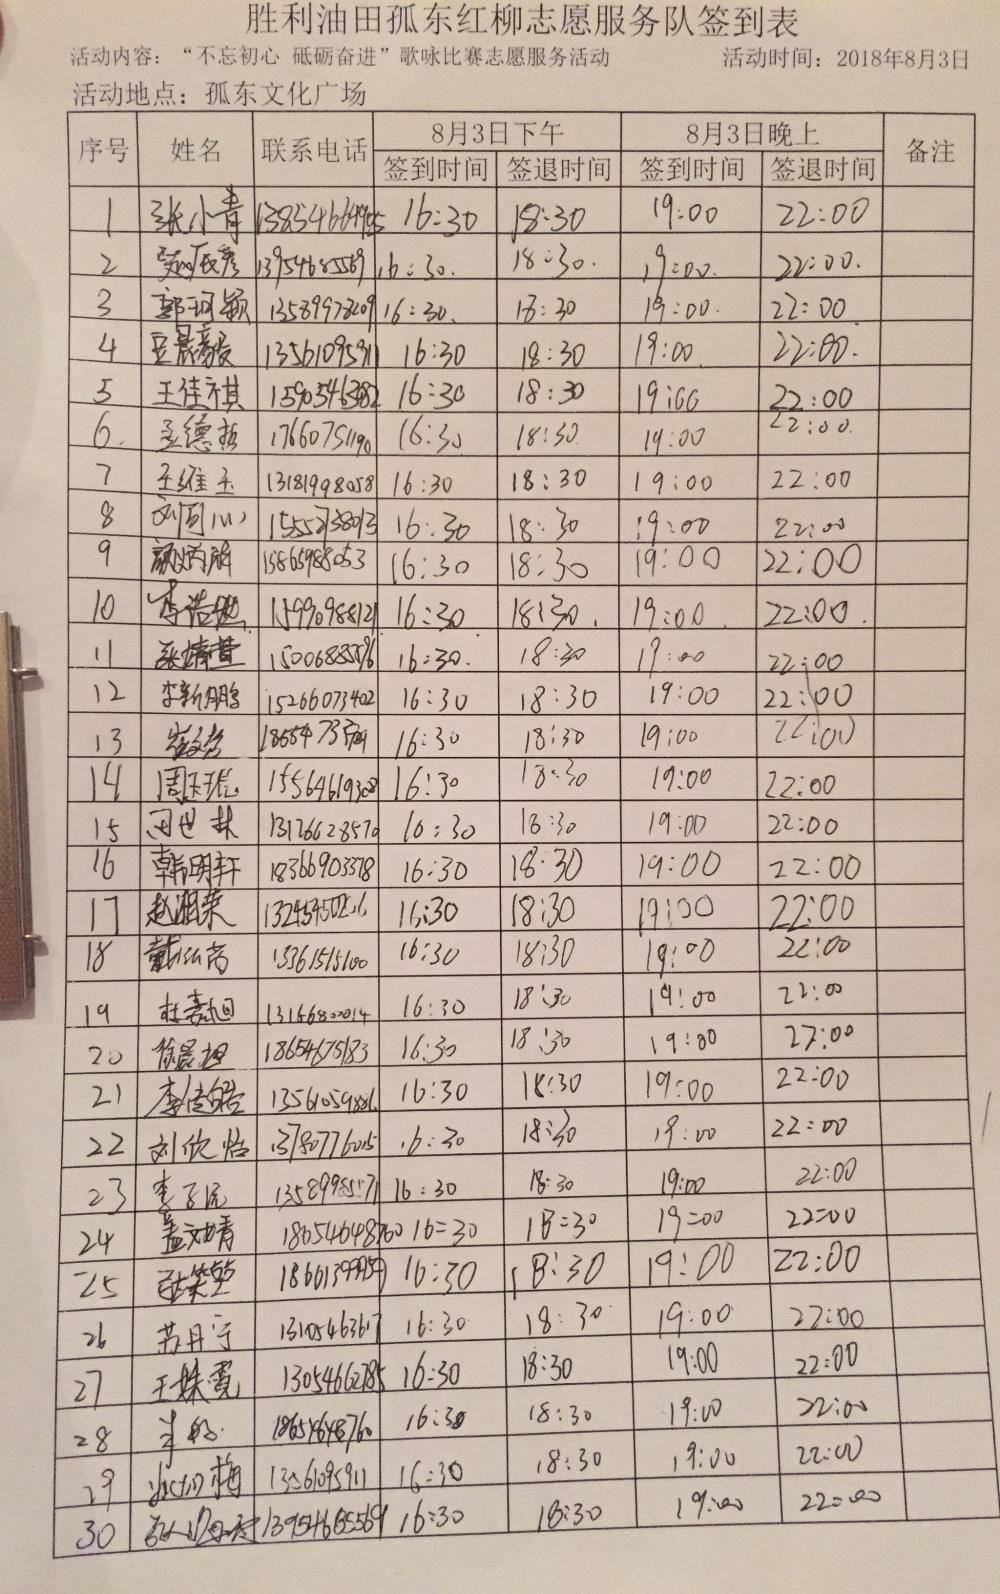 胜利油田孤东红柳志愿服务队签到表
活动内容：“不忘初心 砥砺奋进”歌咏比赛志愿服务活动 活动时间：2018年8月3日
活动地点：孤东文化广场
序号 姓名 联系电话 8月3日下午 8月3日晚上 备注
签到时间 签退时间 签到时间 签退时间
1 张小青 16:30 18:30 19:00 22:00
2 13954685569 16:30. 18:30. 19:00. 22:00.
3 郭珂颖 16:30. 18:30 19:00. 22:00
4 13561095911 16:30 18:30 19:00 22:00.
5 王佳祺 15905463982 16:30 18:30 19:00 22:00
6. 孟德哲 17660751190 16:30 18:30 19:00 22:00.
7 王维玉 13181998058 16:30 18:30 19:00 22:00
8 16:30 18:30 19:00 22:00
9 15865988053 16:30 18:30 19:00 22:00
10 15990988121 16:30 18:30. 19:00 22:00.
11 16:30. 18:30 19:00 22:00
12 李新鹏 15266073402 16:30 18:30 19:00 22:00
13 16:30 18:30 19:00 22:00
14 15564619308 16:30 18:30 19:00 22:00
15 田世林 13126628570 16:30 18:30 19:00 22:00
16 韩明轩 18366903378 16:30 18:30 19:00 22:00
17 赵湘荣 16:30 18:30 19:00 22:00
18 13361515100 16:30 18:30 19:00 22:00
19 16:30 18:30 19:00 22:00
20 徐晨旭 18654675183 16:30 18:30 19:00 22:00
21 16:30 18:30 19:00 22:00
22 刘欣怡 13780776015 16:30 18:30 19:00 22:00
23 13589985571 16:30 18:30 19:00 22:00
24 孟文婧 18654648760 16=30 18=30 19=00 22=00
25 16:30 18:30 19:00 22:00
26 苏丹宁 13105463617 16:30 18:30 19:00 22:00
27 王姝霓 13054662785 16:30 18:30 19:00 22:00
28 18654648760 16:30 18:30 19:00 22:00
29 13561095911 16:30 18:30 19:00 22:00
30 13954685569 16:30 18:30 19:00 22:00